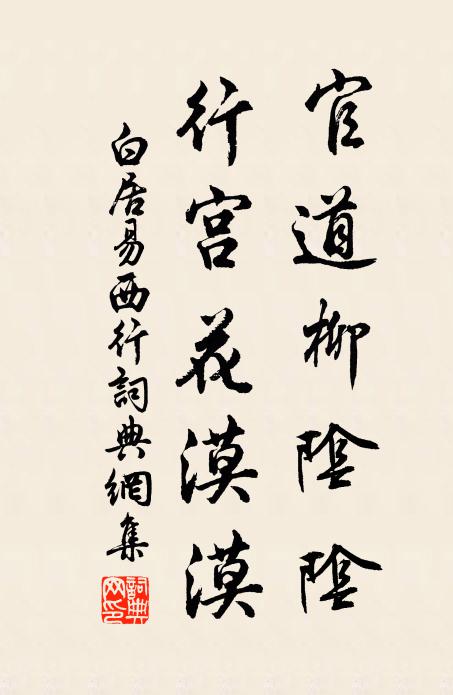 官道柳陰陰
行宮花漠漠
白居易西行詞典網集
詞典網印